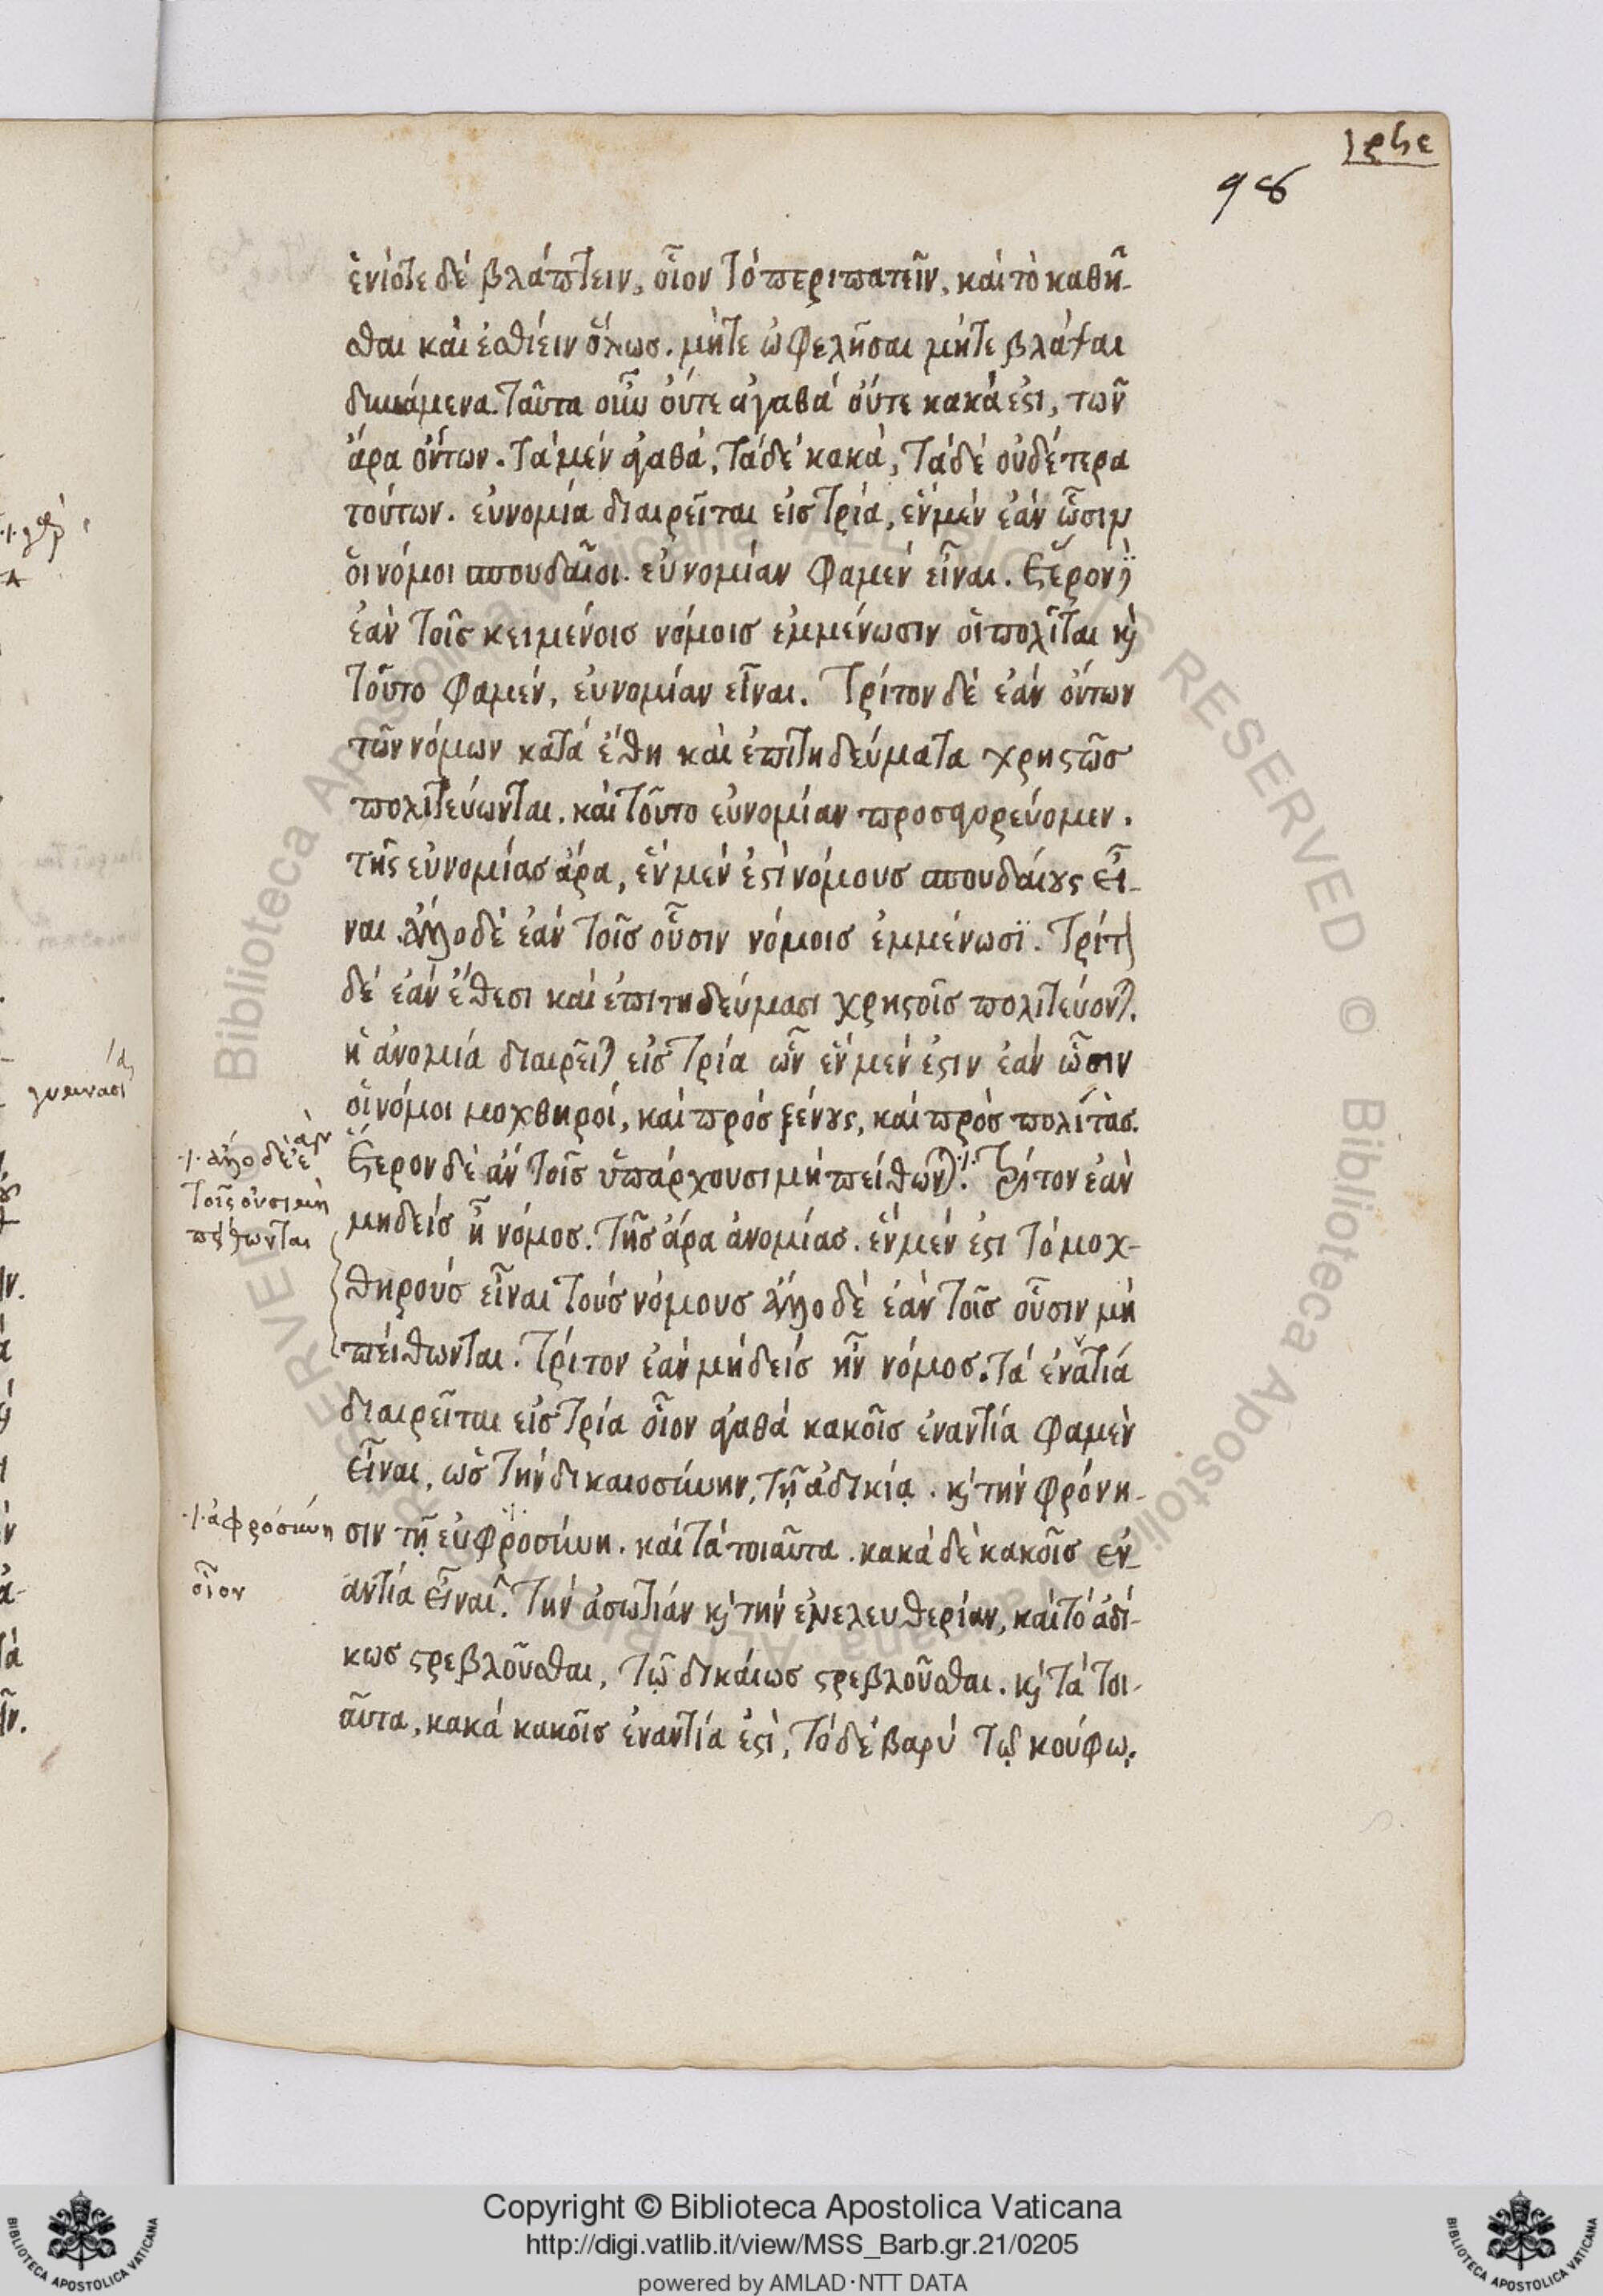 98
ἐνίοτε δέ βλάπτειν, οἷον τό περιπατεῖν, καί τὸ καθῆ-
σθαι καὶ ἐσθίειν ὅλως. μήτε ὠφελῆσαι μήτε βλάψαι
δυνάμενα. ταῦτα οὖν οὔτε ἀγαθά οὔτε κακά ἐϛι, τῶν
ἄρα ὄντων. τά μέν ἀγαθά, τά δέ κακά, τά δέ οὐδέτερα
τούτων. εὐνομία διαιρεῖται εἰσ τρία, ἕν μέν ἐάν ὦσιν
οἱ νόμοι σπουδαῖοι. εὐνομίαν φαμέν εἶναι. ἕτερον
ἐὰν τοῖς κειμένοισ νόμοισ ἐμμένωσιν οἱ πολῖται κὶ
τοῦτο φαμέν, εὐνομίαν εἶναι. τρίτον δέ ἐάν ὄντων
τῶν νόμων κατά ἔθη καὶ ἐπιτηδεύματα χρηϛῶσ
πολιτεύωνται. καί τοῦτο εὐνομίαν προσαγορεύομεν.
τῆς εὐνομίασ ἄρα, ἕν μέν ἐϛί νόμουσ σπουδαίȣς εἶ-
ναι. ἄλλο δέ ἐάν τοῖσ οὖσιν νόμοισ ἐμμένωσϊ. τρίτ
δέ ἐάν ἔθεσι καί ἐπιτηδεύμασι χρηϛοῖσ πολιτεύον).
ἡ ἀνομία διαιρεῖ) εἰσ τρία ὧν ἕν μέν ἐϛιν ἐάν ὦσιν
οἱ νόμοι μοχθηροί, καί πρόσ ξένȣς, καί πρόσ πολίτασ.
ἕτερον δέ ἄν τοῖσ ὑπάρχουσι μή πείθων). τρίτον ἐὰν
μηδείσ ᾖ νόμοσ. τῆσ ἄρα ἀνομίασ. ἕν μέν ἐϛι τό μοχ-
θηρούσ εἶναι τούσ νόμουσ ἄλλο δέ ἐάν τοῖσ οὖσιν μή
πείθωνται. τρίτον ἐάν μήδείσ ἦν νόμοσ. τά ἐνατιά
διαιρεῖται εἰσ τρία οἷον ἀγαθά κακοῖσ ἐναντία φαμέν
εἶναι, ὡσ τήν δικαιοσύνην, τῇ ἀδικίᾳ. κὶ τήν φρόνη-
σιν τῇ εὐφροσύνη. καί τά τοιαῦτα. κακά δέ κακοῖσ ἐν-
αντία εἶναι. τήν ἀσωτιάν κὶ τήν ἐνελευθερίαν, καί τό ἀδί-
κωσ ϛρεβλοῦσθαι, τῷ δικαίωσ ϛρεβλοῦσθαι. κὶ τά τοι-
αῦτα, κακά κακοῖσ ἐναντία ἐϛὶ, τό δέ βαρύ τῷ κούφῳ.
ἄλλο δέ ἐάν
τοῖς οὖσι μὴ
πείθωνται
ἀφροσύνη
οἷον
Copyright © Biblioteca Apostolica Vaticana
http://digi.vatlib.it/view/MSS_Barb.gr.21/0205
powered by AMLAD·NTT DATA
BIBLIOTECA APOSTOLICA VATICANA
BIBLIOTECA APOSTOLICA VATICANA